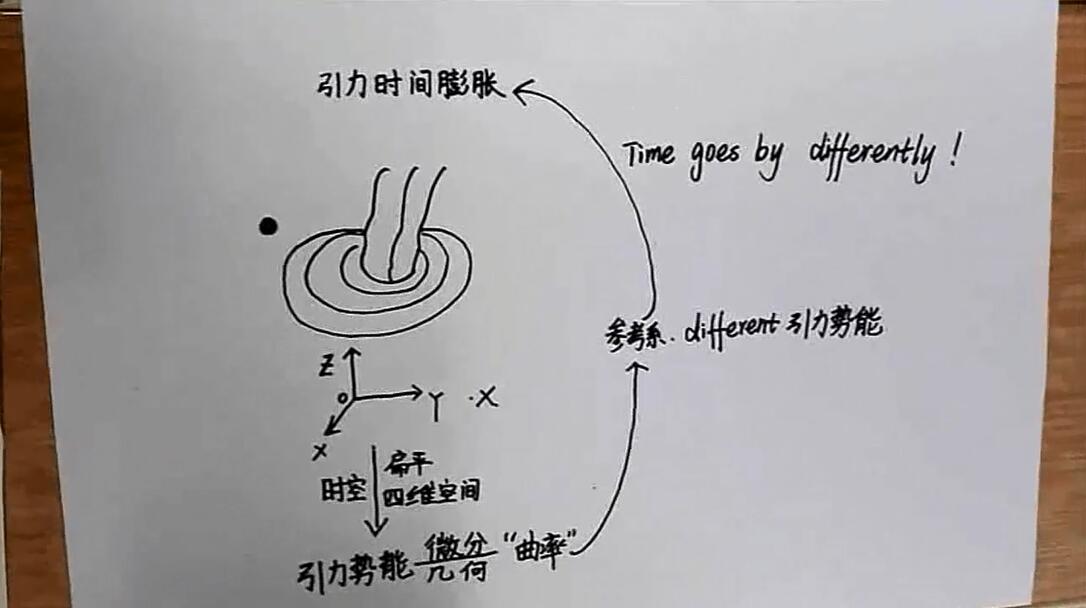 引力时间膨胀
Time goes by differently!
参考系. different 引力势能
Z
O
Y ·X
X
扁平
时空
四维空间
引力势能 微分几何 “曲率”